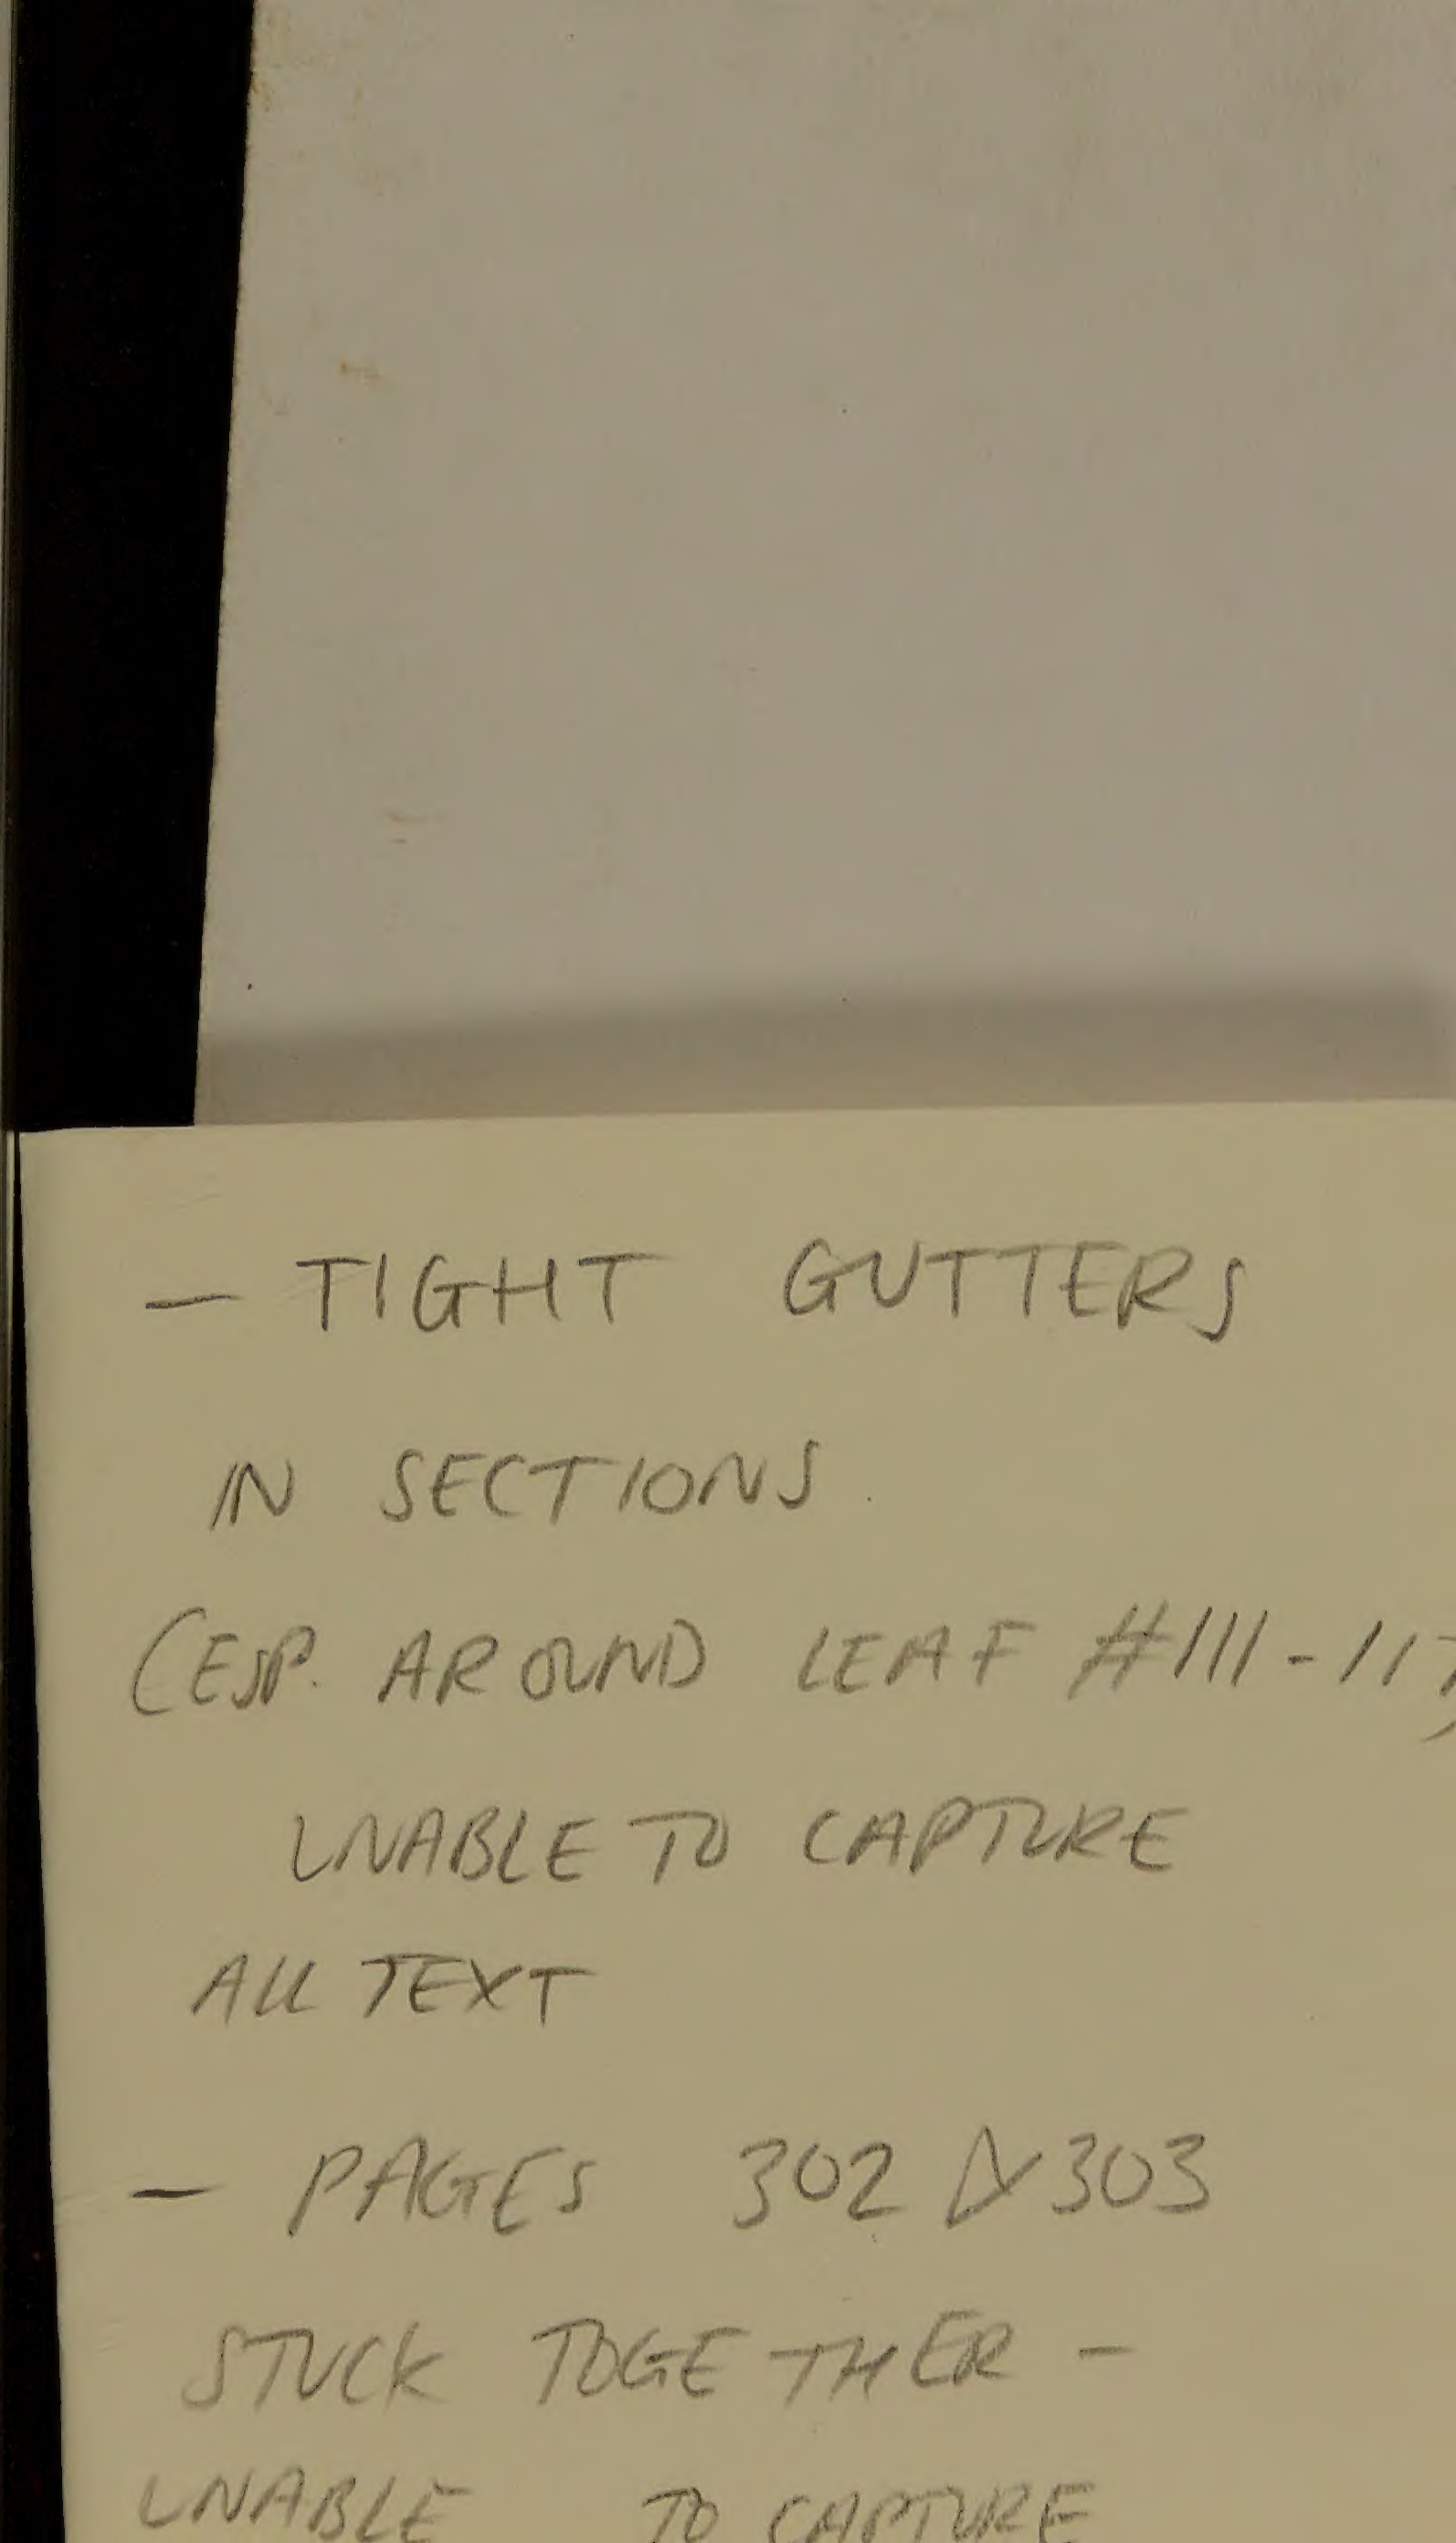 — TIGHT GUTTERS
IN SECTIONS
(ESP. AROUND LEAF #111-117)
UNABLE TO CAPTURE
ALL TEXT
— PAGES 302 & 303
STUCK TOGETHER —
UNABLE TO CAPTURE